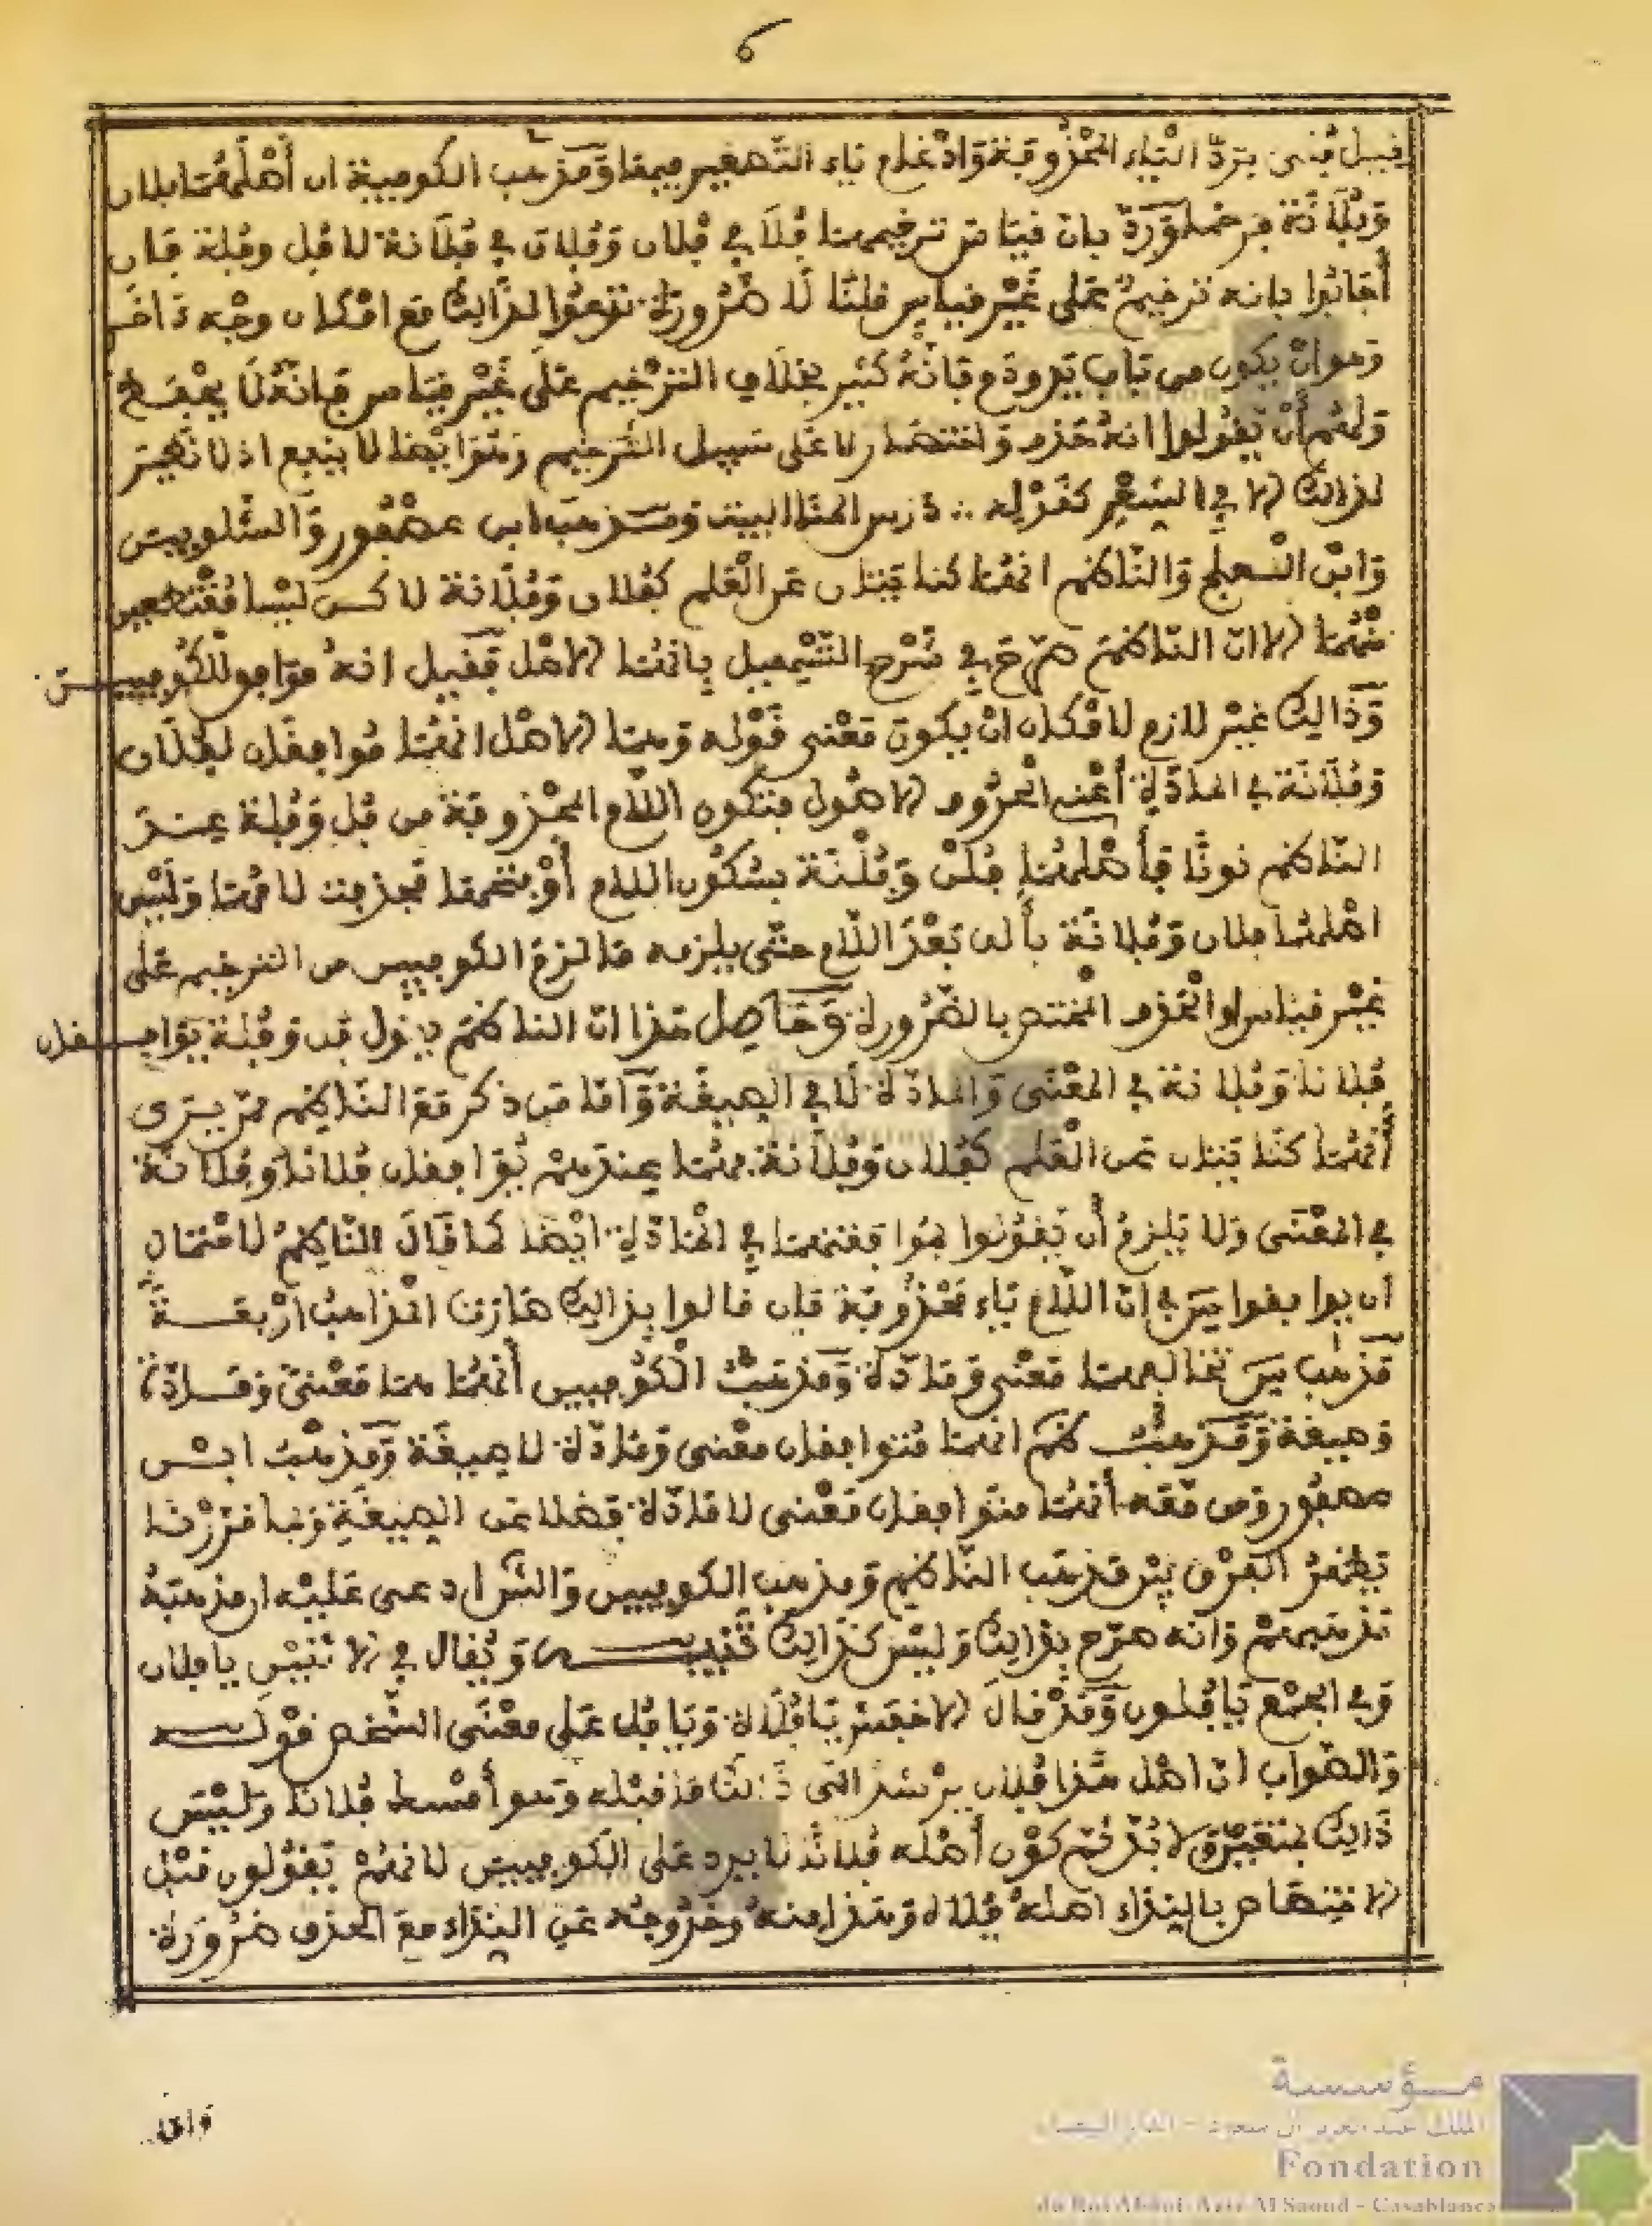 6
فبيل فُنى بردّ الياء المحذوفة وادغام ياء التصغير فيها ومذهب الكوفيين ان أصلهما فلان
وفلانة فرخما وردّ بان قياس ترخيمهما فُلَا في فلان وفلان في فلانة لا فل وفلة فان
أجابوا بانه ترخيم على غير قياس قلنا لا ضرورة تدعوا لذالك مع امكان وجه ءاخر
وهو ان يكون من باب يد ودم فانه كثير بخلاف الترخيم على غير قياس فانه لا
ولهم أن يقولوا انه حذف واختصار لا على سبيل الترخيم وجوابهذا لا ينفع اذ لا نجيز
لذالك الا في الشعر كقوله ∴ درس المنا البيت ومذهب ابن عصفور والشلوبين
وابن العلج والناظم انهما كنايتان عن العلم كفلان وفلانة لاكن ليسا مقتطعين
منهما الا ان الناظم صرّح في شرح التسهيل بانهما الاصل فقيل انه موافق للكوفيين
وذالك غير لازم لامكان ان يكون معنى قوله وهما الاصل انهما موافقان لفلان
وفلانة في المادّة أعني الحروف الاصول فتكون اللام المحذوفة من فل وفلة عند
الناظم نونا فأصلهما فلن وفلنة بسكون اللام أو بفتحها فحذفت لامهما وليس
اصلهما فلان وفلانة بألف بعد اللام حتى يلزمه ما لزم الكوفيين من الترخيم على
غير قياس او الحذف المختص بالضرورة وحاصل هذا ان الناظم يقول فل وفلة يوافقان
فلانا وفلانة في المعنى والمادّة لا في الصيغة وأما من ذكر مع الناظم ممن يرى
أنهما كنايتان عن العلم كفلان وفلانة فهما عندهم يوافقان فلانا وفلانة
في المعنى ولا يلزم أن يقولوا بموافقتهما في المادّة ايضا كما قال الناظم لاحتمال
ان يوافقوا س في ان اللام ياء محذوفة فان قالوا بذالك صارت المذاهب أربعة
مذهب س تخالفهما معنى ومادّة ومذهب الكوفيين أنهما هما معنى ومادّة
وصيغة ومذهب ظم انهما متوافقان معنى ومادّة لا صيغة ومذهب ابن
عصفور ومن معه أنهما متوافقان معنى لا مادّة فضلا عن الصيغة وبما قررنا
يظهر الفرق بين مذهب الناظم ومذهب الكوفيين والش ادعى عليه ان مذهبه
مذهبهم وانه صرّح بذالك وليس كذالك تنبيه ويقال في التثنية يا فلان
وفي الجمع يا فلون وقد قال الاخفش يا فلاة ويا فل على معنى الشخص قوله
والصواب ان اصل هذا فلان يرشد الى ذالك ما قبله وهو أمسك فلانا وليس
ذالك بمتعيّن لا بُدّ ثم كون أصله فلانا لا يرد على الكوفيين لانهم يقولون مثل
الاختصاص بالنداء اصله فلان وهذا منه وخروجه عن النداء مع الحذف ضرورة
وان
مؤسسة
الملك عبد العزيز آل سعود - الدار البيضاء
Fondation
du Roi Abdul-Aziz Al Saoud - Casablanca